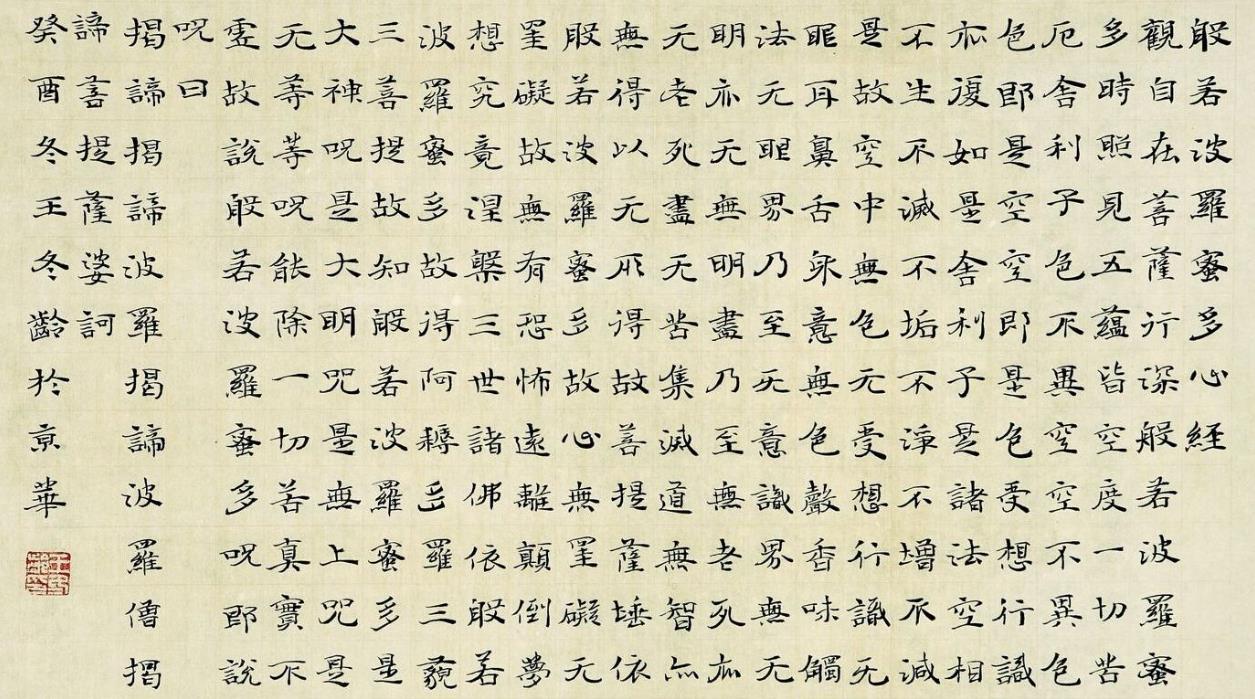 般若波羅蜜多心経
觀自在菩薩行深般若波羅蜜
多時照見五蘊皆空度一切苦
厄舍利子色不異空空不異色
色即是空空即是色受想行識
亦復如是舍利子是諸法空相
不生不滅不垢不淨不增不減
是故空中無色无受想行識无
眼耳鼻舌身意無色聲香味觸
法无眼界乃至无意識界無无
明亦无無明盡乃至無老死亦
无老死盡无苦集滅道無智亦
無得以无所得故菩提薩埵依
般若波羅蜜多故心無罣礙无
罣礙故無有恐怖遠離顛倒夢
想究竟涅槃三世諸佛依般若
波羅蜜多故得阿耨多羅三藐
三菩提故知般若波羅蜜多是
大神呪是大明呪是無上呪是
无等等呪能除一切苦真實不
虛故說般若波羅蜜多呪即說
呪曰
揭諦揭諦波羅揭諦波羅僧揭
諦菩提薩婆訶
癸酉冬王冬齡於京華